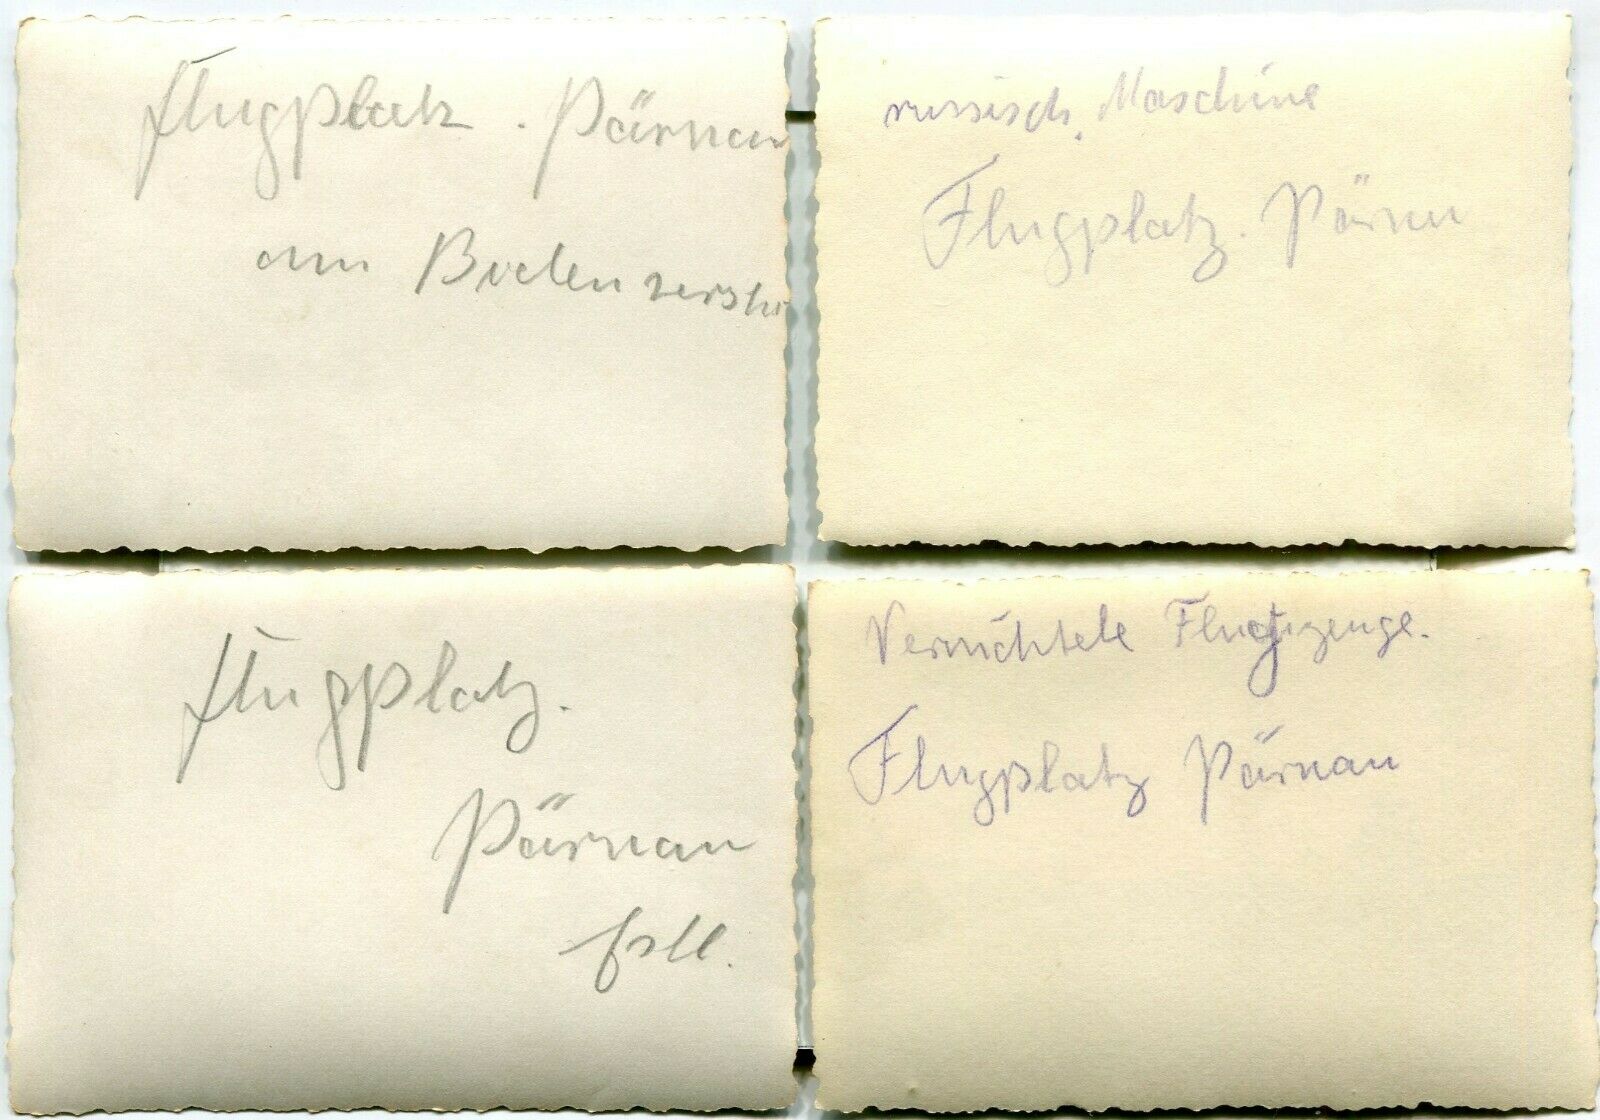 Flugplatz. Pärnau
am Boden zerstö
russisch. Maschine
Flugplatz. Pärnu
Flugplatz.
Pärnau
Vernichtete Flugzeuge.
Flugplatz Pärnau